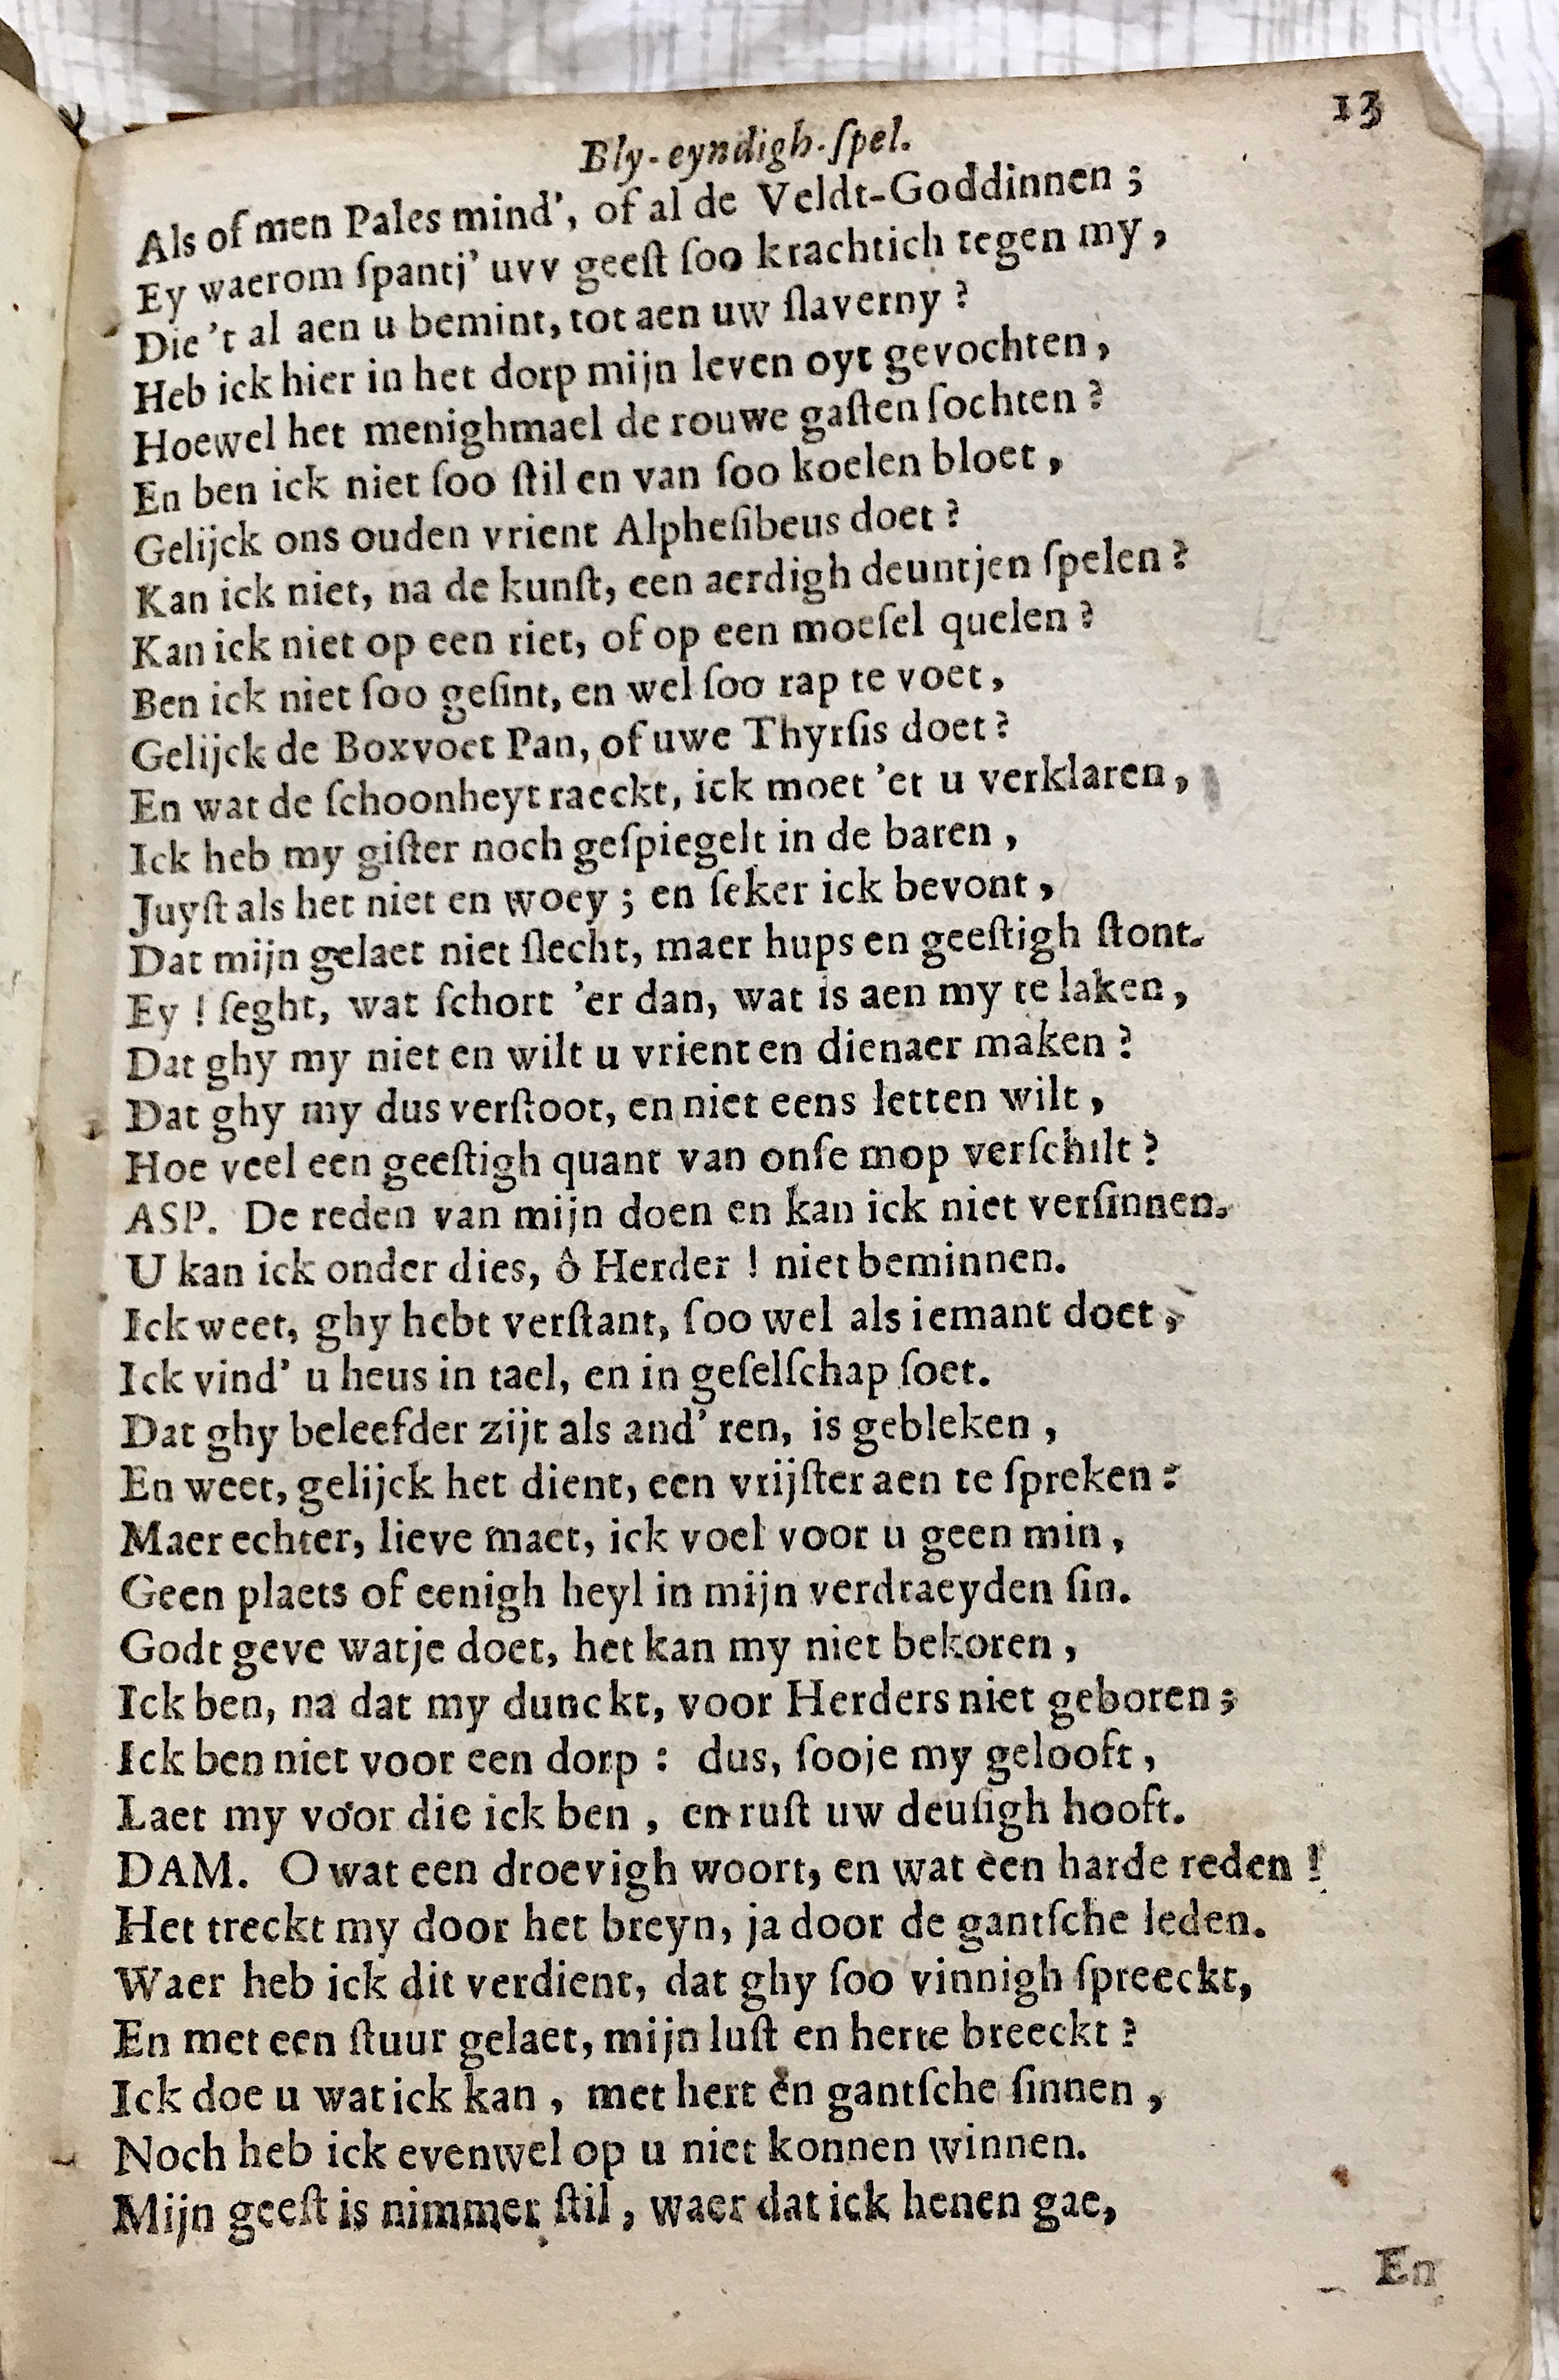 13
Bly-eyndigh-ſpel.
Als of men Pales mind', of al de Veldt-Goddinnen ;
Ey waerom ſpantj' uvv geeſt ſoo krachtich tegen my ,
Die 't al aen u bemint, tot aen uw ſlaverny ?
Heb ick hier in het dorp mijn leven oyt gevochten ,
Hoewel het menighmael de rouwe gaſten ſochten ?
En ben ick niet ſoo ſtil en van ſoo koelen bloet ,
Gelijck ons ouden vrient Alpheſibeus doet ?
Kan ick niet, na de kunſt, een aerdigh deuntjen ſpelen ?
Kan ick niet op een riet, of op een moeſel quelen ?
Ben ick niet ſoo geſint, en wel ſoo rap te voet ,
Gelijck de Boxvoet Pan, of uwe Thyrſis doet ?
En wat de ſchoonheyt raeckt, ick moet 'et u verklaren ,
Ick heb my giſter noch geſpiegelt in de baren ,
Juyſt als het niet en woey ; en ſeker ick bevont ,
Dat mijn gelaet niet ſlecht, maer hups en geeſtigh ſtont.
Ey ! ſeght, wat ſchort 'er dan, wat is aen my te laken ,
Dat ghy my niet en wilt u vrient en dienaer maken ?
Dat ghy my dus verſtoot, en niet eens letten wilt ,
Hoe veel een geeſtigh quant van onſe mop verſchilt ?
ASP. De reden van mijn doen en kan ick niet verſinnen.
U kan ick onder dies, ô Herder ! niet beminnen.
Ick weet, ghy hebt verſtant, ſoo wel als iemant doet ,
Ick vind' u heus in tael, en in geſelſchap ſoet.
Dat ghy beleefder zijt als and' ren, is gebleken ,
En weet, gelijck het dient, een vrijſter aen te ſpreken :
Maer echter, lieve maet, ick voel voor u geen min ,
Geen plaets of eenigh heyl in mijn verdraeyden ſin.
Godt geve watje doet, het kan my niet bekoren ,
Ick ben, na dat my dunckt, voor Herders niet geboren ;
Ick ben niet voor een dorp : dus, ſooje my gelooft ,
Laet my voor die ick ben , en ruſt uw deuſigh hooft.
DAM. O wat een droevigh woort, en wat een harde reden !
Het treckt my door het breyn, ja door de gantſche leden.
Waer heb ick dit verdient, dat ghy ſoo vinnigh ſpreeckt,
En met een ſtuur gelaet, mijn luſt en herte breeckt ?
Ick doe u wat ick kan , met hert en gantſche ſinnen ,
Noch heb ick evenwel op u niet konnen winnen.
Mijn geeſt is nimmer ſtil , waer dat ick henen gae,
En